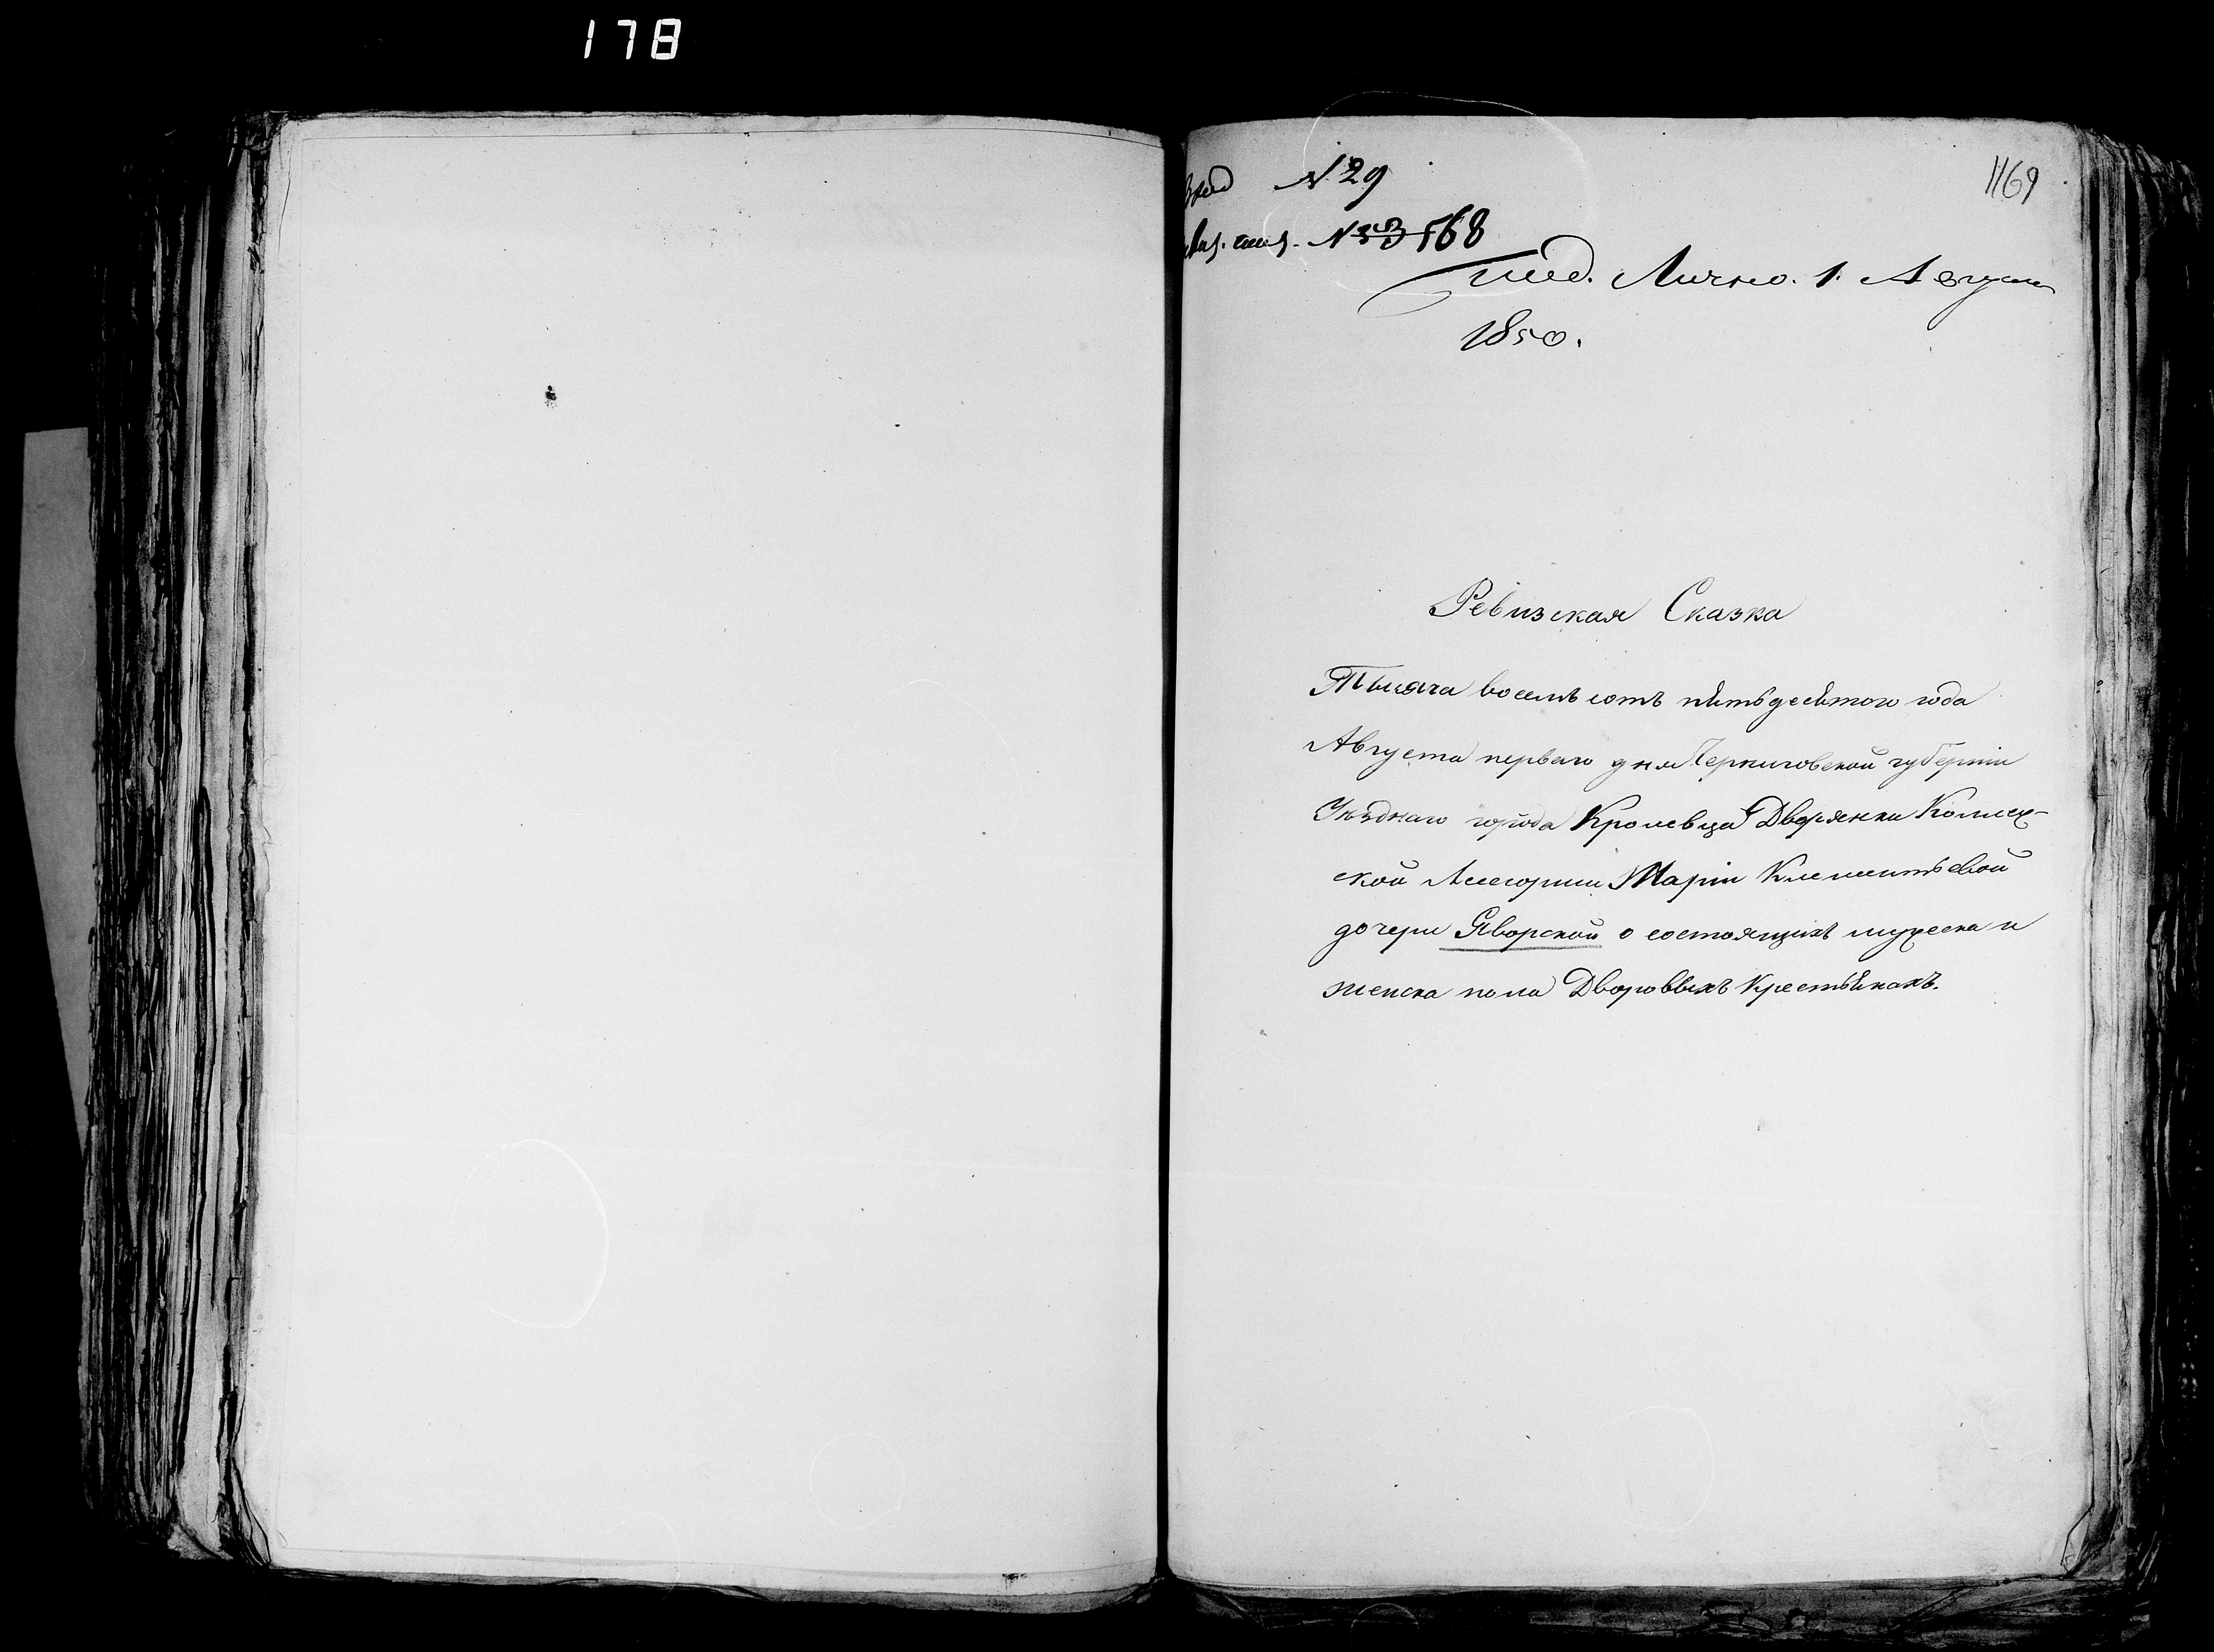 178
1169
N 29
568
под. Лично. 1. Август
1850.
Ревизская Сказка
Тысяча восемь сотъ пятьдесятого года
Августа перваго дня Черниговской губерніи
Уѣзднаго города Кролевца Дворянки Коллеж-
ской Ассесорши Маріи Клементьевой
дочери Яворской о состоящихъ мужеска и
женска пола Дворовыхъ Крестьянахъ.